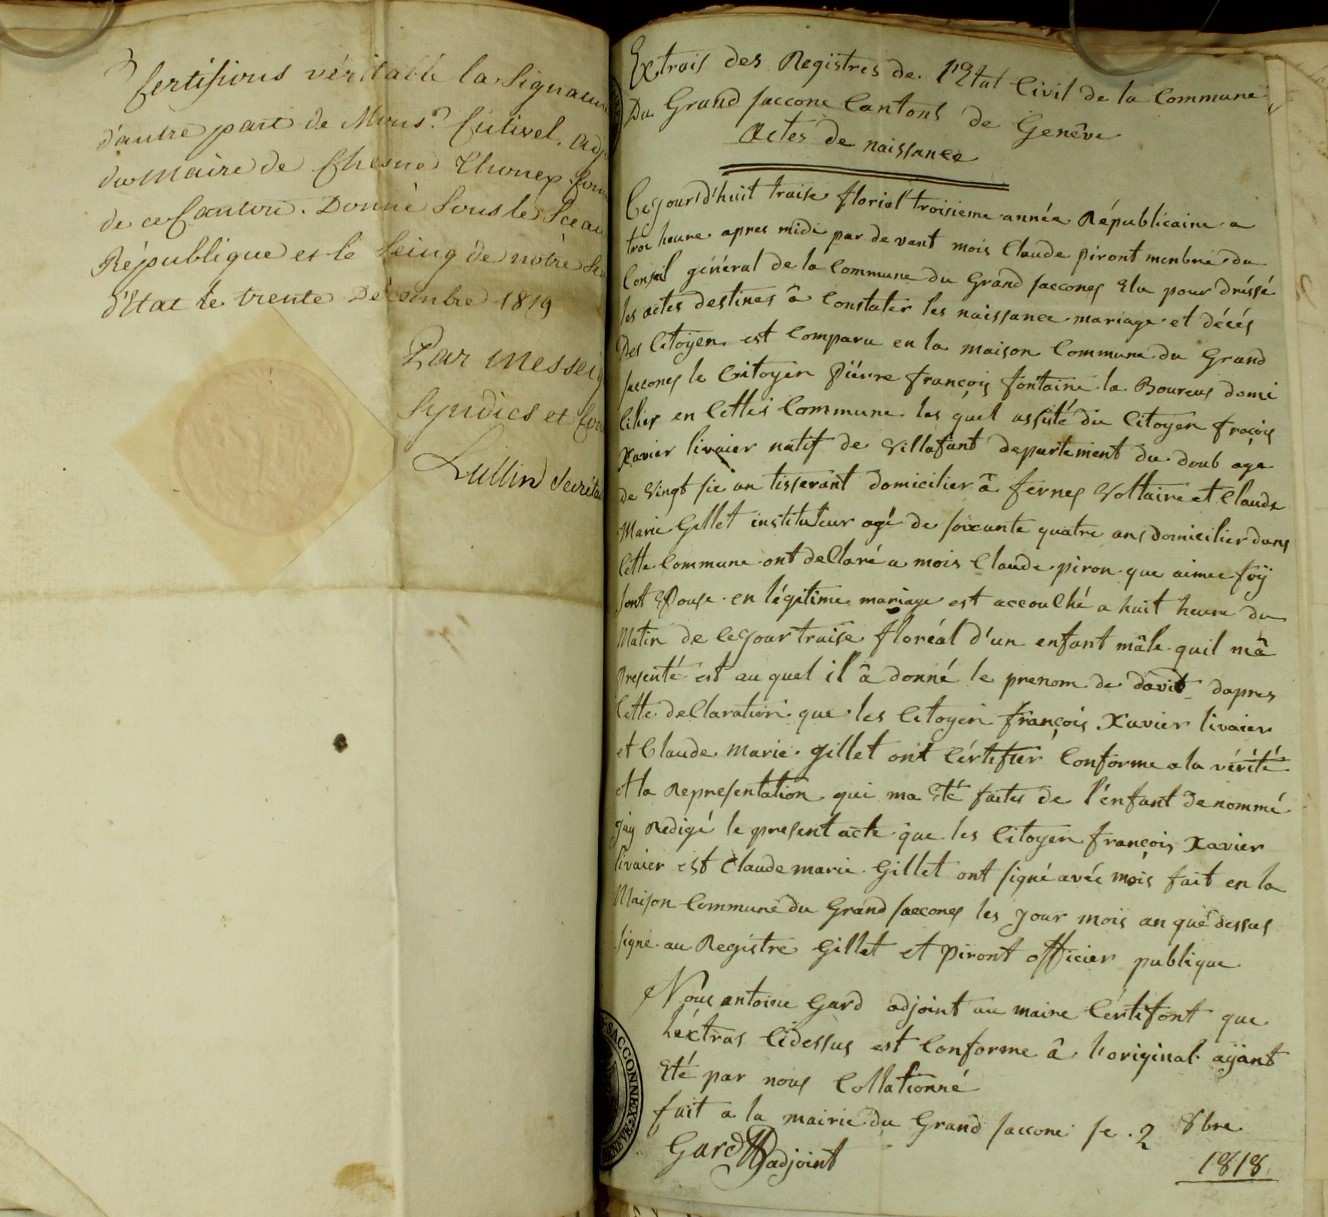 Certifions véritable la Signature
d'autre part de Mons.r Cutivel, Adj
du Maire de Chesne Thonex, Com
de ce Canton. Donné sous le Sceau
République et le Seing de notre Se
d'Etat le trente Décembre 1819
Par Messeig
Syndics et Con
Lullin Secréta
Extrais des Registres de l'Etat Civil de la Commune
Du Grand Saccone Cantons de Genêve
Actes de naissance
Ce jourd'huit traise florial troisieme année Républicaine a
troi heure apres midi par devant mois Claude piront menbre du
Conseil général de la Commune du Grand Saccones Elu pour dréssé
les actes destines â Constater les naissance mariage et décés
Des Citoyen est Comparu en la maison Commune du Grand
Saccones le Citoyen Piérre françois fontaine la Boureus domi
cilier en Cettes Commune les quel assisté du Citoyen fraçois
Xavier livaier natif de Villafant departement du doub age
de Vingt sie an tisserant domicilier â fernes Voltaire et Claude
Marie Gillet instituteur agé de soixante quatre ans domicilier dans
Cette Commune ont dellaré a mois Claude piron que aimee foÿ
sont Epouse en légitime mariage est accouché a huit heure du
Matin de ce jour traise floréal d'un enfant mâle quil mâ
Presenté est au quel il â donné le prenom de david dapres
Cette dellaration que les Citoyen françois Xavier livaier
et Claude Marie Gillet ont Cértifier Conforme a la vérité
et la Représentation qui ma Eté faites de l'enfant denommé
J'ay Redigé le present acte que les Citoyen françois Xavier
livaier est Claude marie Gillet ont signé avéc mois fait en la
Maison Commune du Grand Saccones les jour mois an que dessus
Signé au Registre Gillet et Piront officier publique
Nous antoine Gard adjoint au maire Cértifont que
Léxtras Cidessus est Conforme â l'original aÿant
Eté par nous Collationné
fait a la mairie du Grand Saccone le 2 8bre
Gard adjoint 1818
SACCONNEX
GENEVE